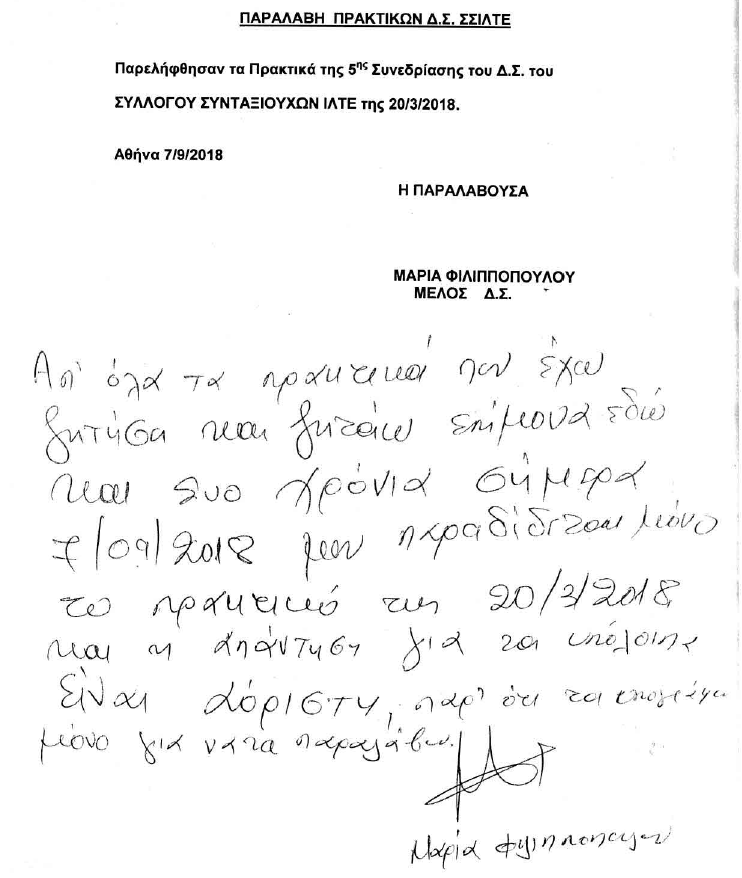 ΠΑΡΑΛΑΒΗ ΠΡΑΚΤΙΚΩΝ Δ.Σ. ΣΣΙΛΤΕ
Παρελήφθησαν τα Πρακτικά της 5ης Συνεδρίασης του Δ.Σ. του
ΣΥΛΛΟΓΟΥ ΣΥΝΤΑΞΙΟΥΧΩΝ ΙΛΤΕ της 20/3/2018.
Αθήνα 7/9/2018
Η ΠΑΡΑΛΑΒΟΥΣΑ
ΜΑΡΙΑ ΦΙΛΙΠΠΟΠΟΥΛΟΥ
ΜΕΛΟΣ Δ.Σ.
Απ' όλα τα πρακτικά που έχω
ζητήσει και ζητάω επίμονα εδώ
και δυο χρόνια σήμερα
7/09/2018 μου παραδίδεται μόνο
το πρακτικό της 20/3/2018
και η απάντηση για τα υπόλοιπα
είναι αόριστη, παρ' ότι τα υπογράφω
μόνο για να τα παραλάβω.
Μαρία Φιλιπποπούλου